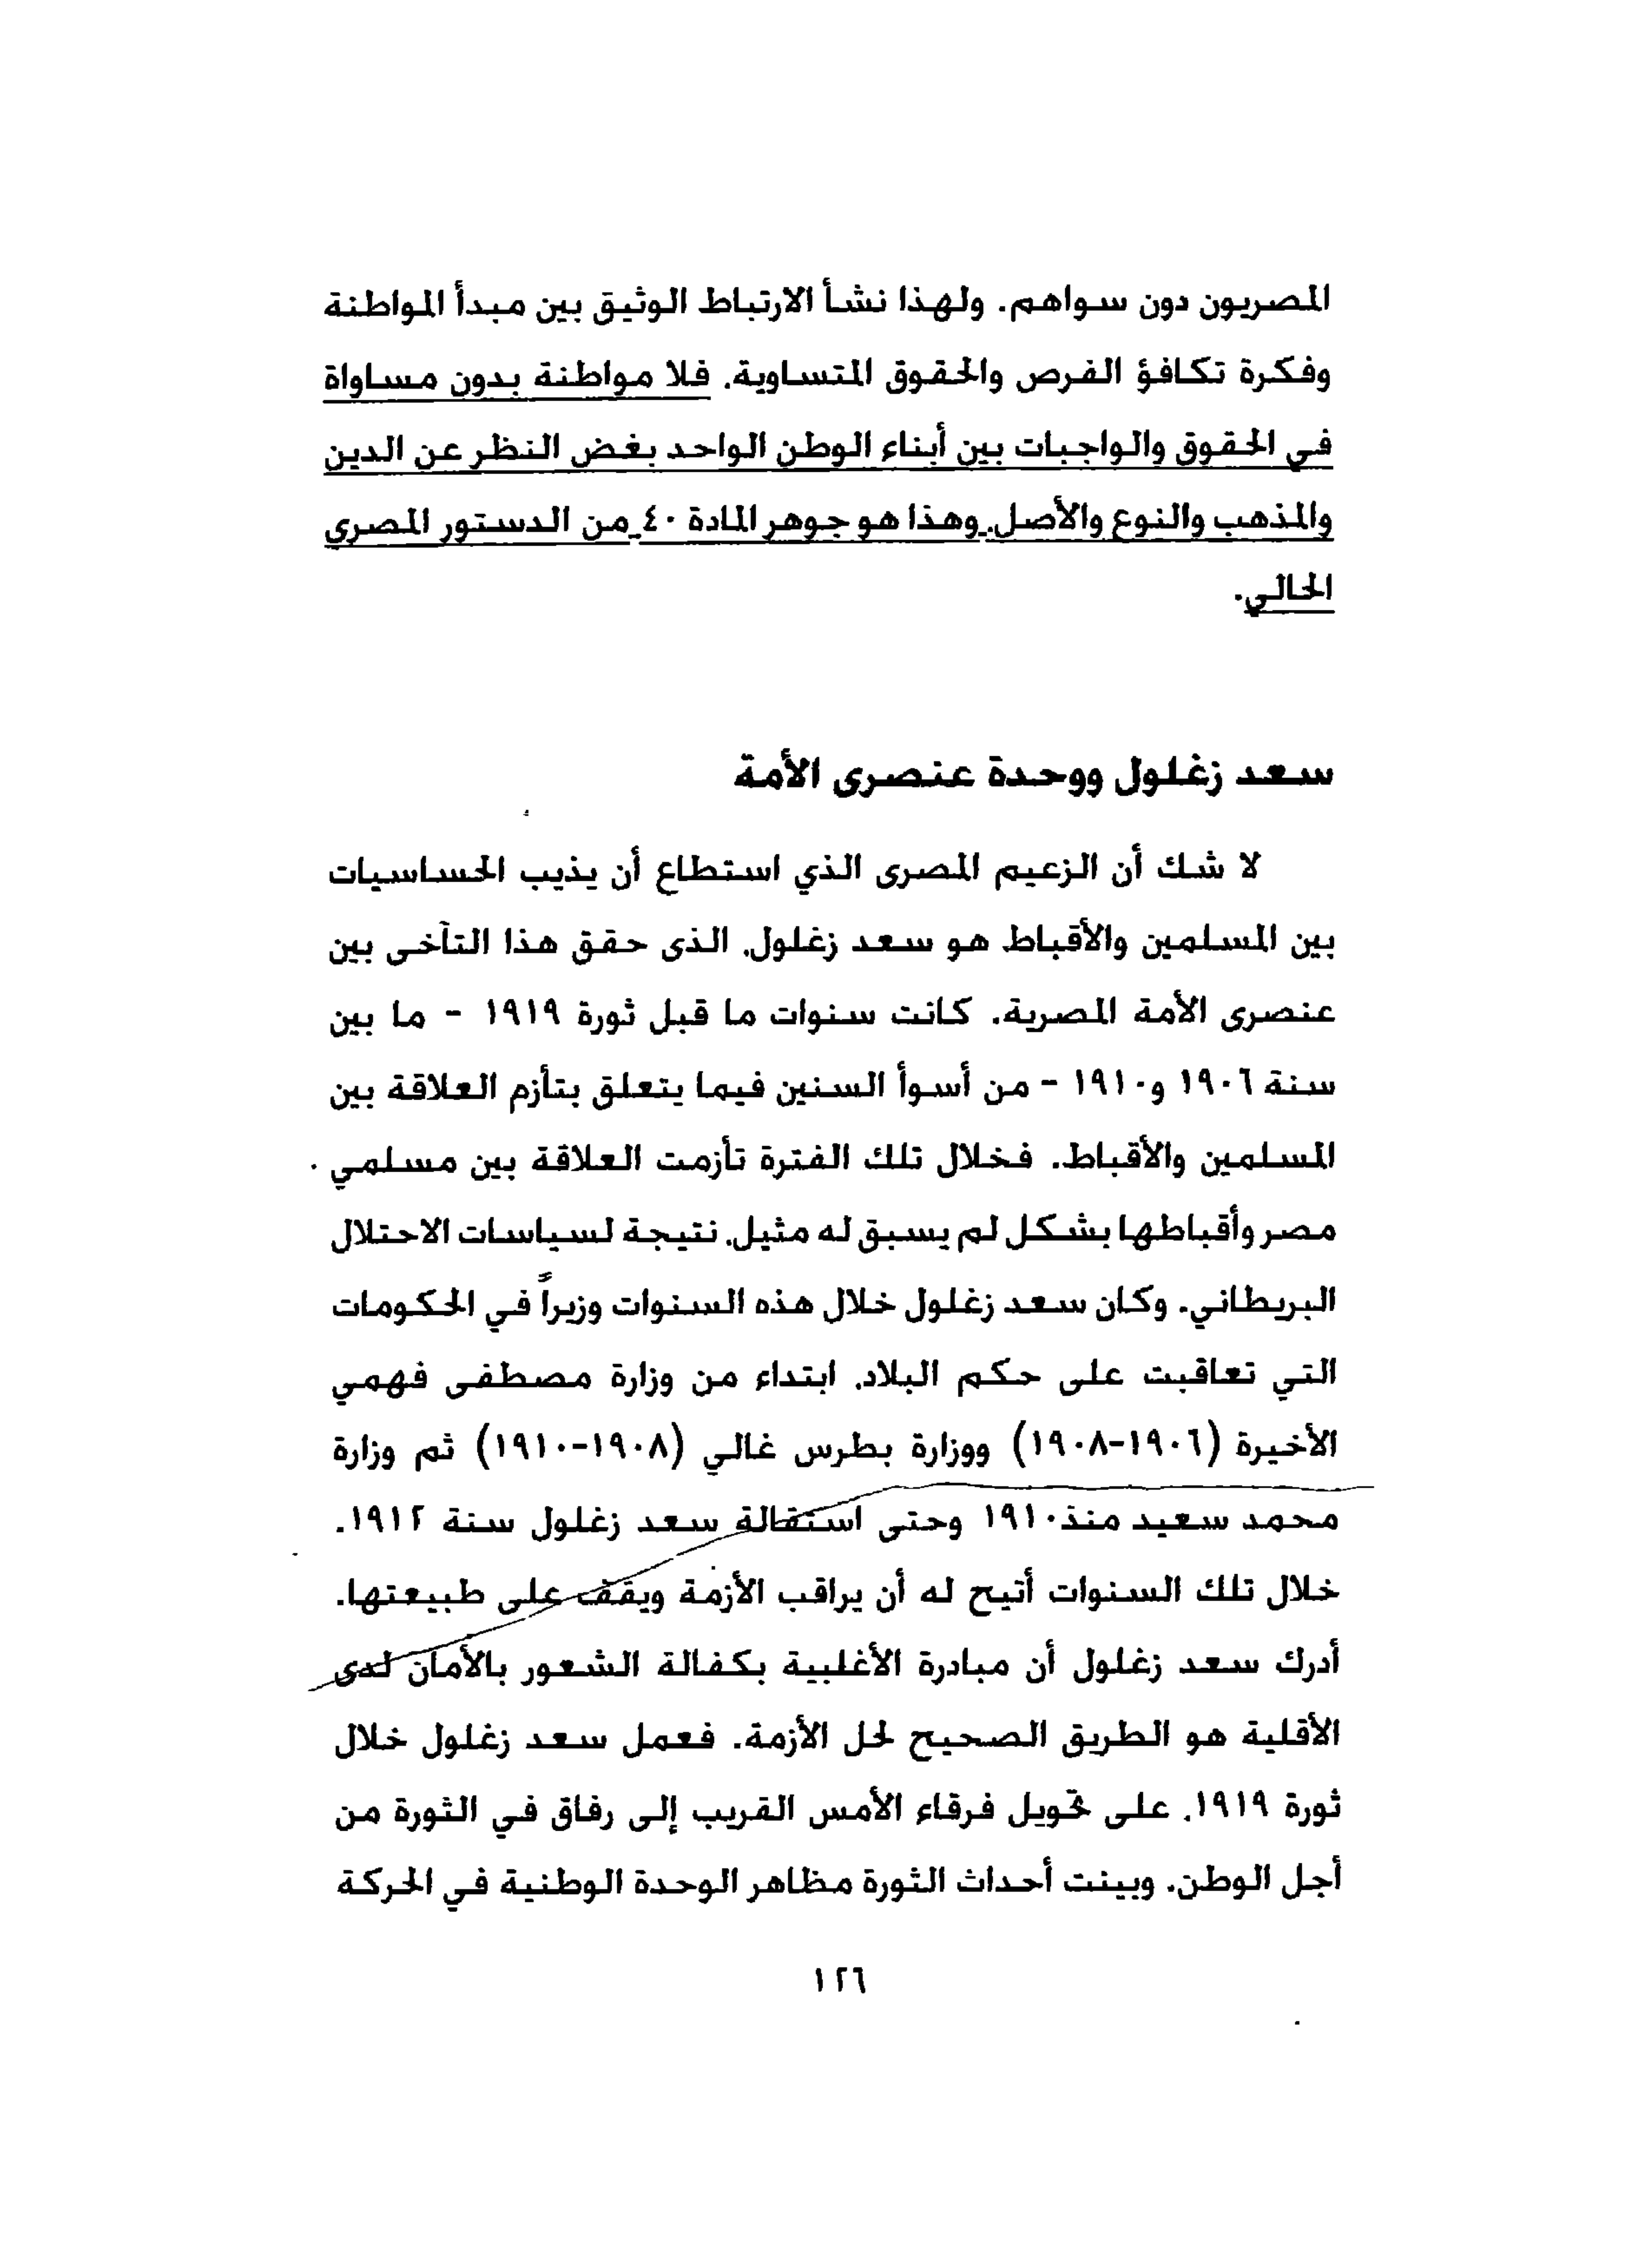 المصريون دون سواهم. ولهذا نشأ الارتباط الوثيق بين مبدأ المواطنة
وفكرة تكافؤ الفرص والحقوق المتساوية. فلا مواطنة بدون مساواة
في الحقوق والواجبات بين أبناء الوطن الواحد بغض النظر عن الدين
والمذهب والنوع والأصل. وهذا هو جوهر المادة ٤٠ من الدستور المصرى
الحالي.
سعد زغلول ووحدة عنصرى الأمة
لا شك أن الزعيم المصرى الذي استطاع أن يذيب الحساسيات
بين المسلمين والأقباط هو سعد زغلول. الذى حقق هذا التآخى بين
عنصرى الأمة المصرية. كانت سنوات ما قبل ثورة ١٩١٩ - ما بين
سنة ١٩٠٦ و١٩١٠ - من أسوأ السنين فيما يتعلق بتأزم العلاقة بين
المسلمين والأقباط. فخلال تلك الفترة تأزمت العلاقة بين مسلمي
مصر وأقباطها بشكل لم يسبق له مثيل. نتيجة لسياسات الاحتلال
البريطاني. وكان سعد زغلول خلال هذه السنوات وزيراً في الحكومات
التي تعاقبت على حكم البلاد. ابتداء من وزارة مصطفى فهمي
الأخيرة (١٩٠٦-١٩٠٨) ووزارة بطرس غالي (١٩٠٨-١٩١٠) ثم وزارة
محمد سعيد منذ١٩١٠ وحتى استقالة سعد زغلول سنة ١٩١٢.
خلال تلك السنوات أتيح له أن يراقب الأزمة ويقف على طبيعتها.
أدرك سعد زغلول أن مبادرة الأغلبية بكفالة الشعور بالأمان لدى
الأقلية هو الطريق الصحيح لحل الأزمة. فعمل سعد زغلول خلال
ثورة ١٩١٩. على تحويل فرقاء الأمس القريب إلى رفاق في الثورة من
أجل الوطن. وبينت أحداث الثورة مظاهر الوحدة الوطنية في الحركة
١٢٦